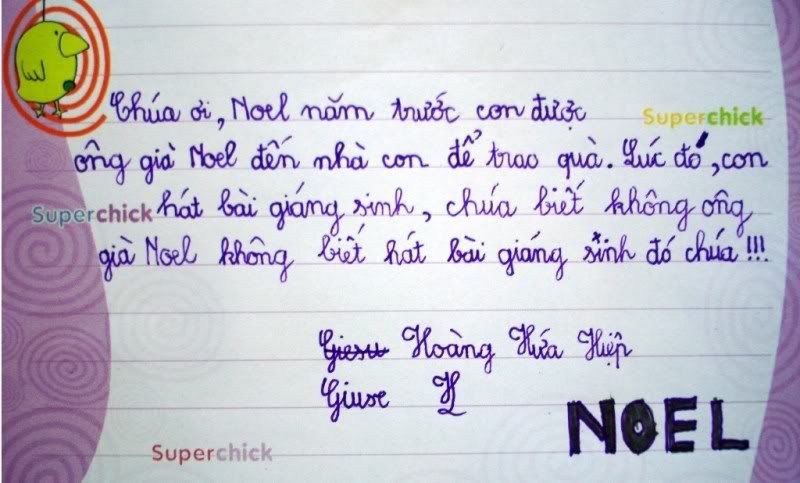 Chúa ơi, Noel năm trước con được
Superchick
ông già Noel đến nhà con để trao quà. Lúc đó, con
Superchick
hát bài giáng sinh, chúa biết không ông
già Noel không biết hát bài giáng sinh đó chúa!!!
Giesu Hoàng Hứa Hiệp
Giuse
NOEL
Superchick